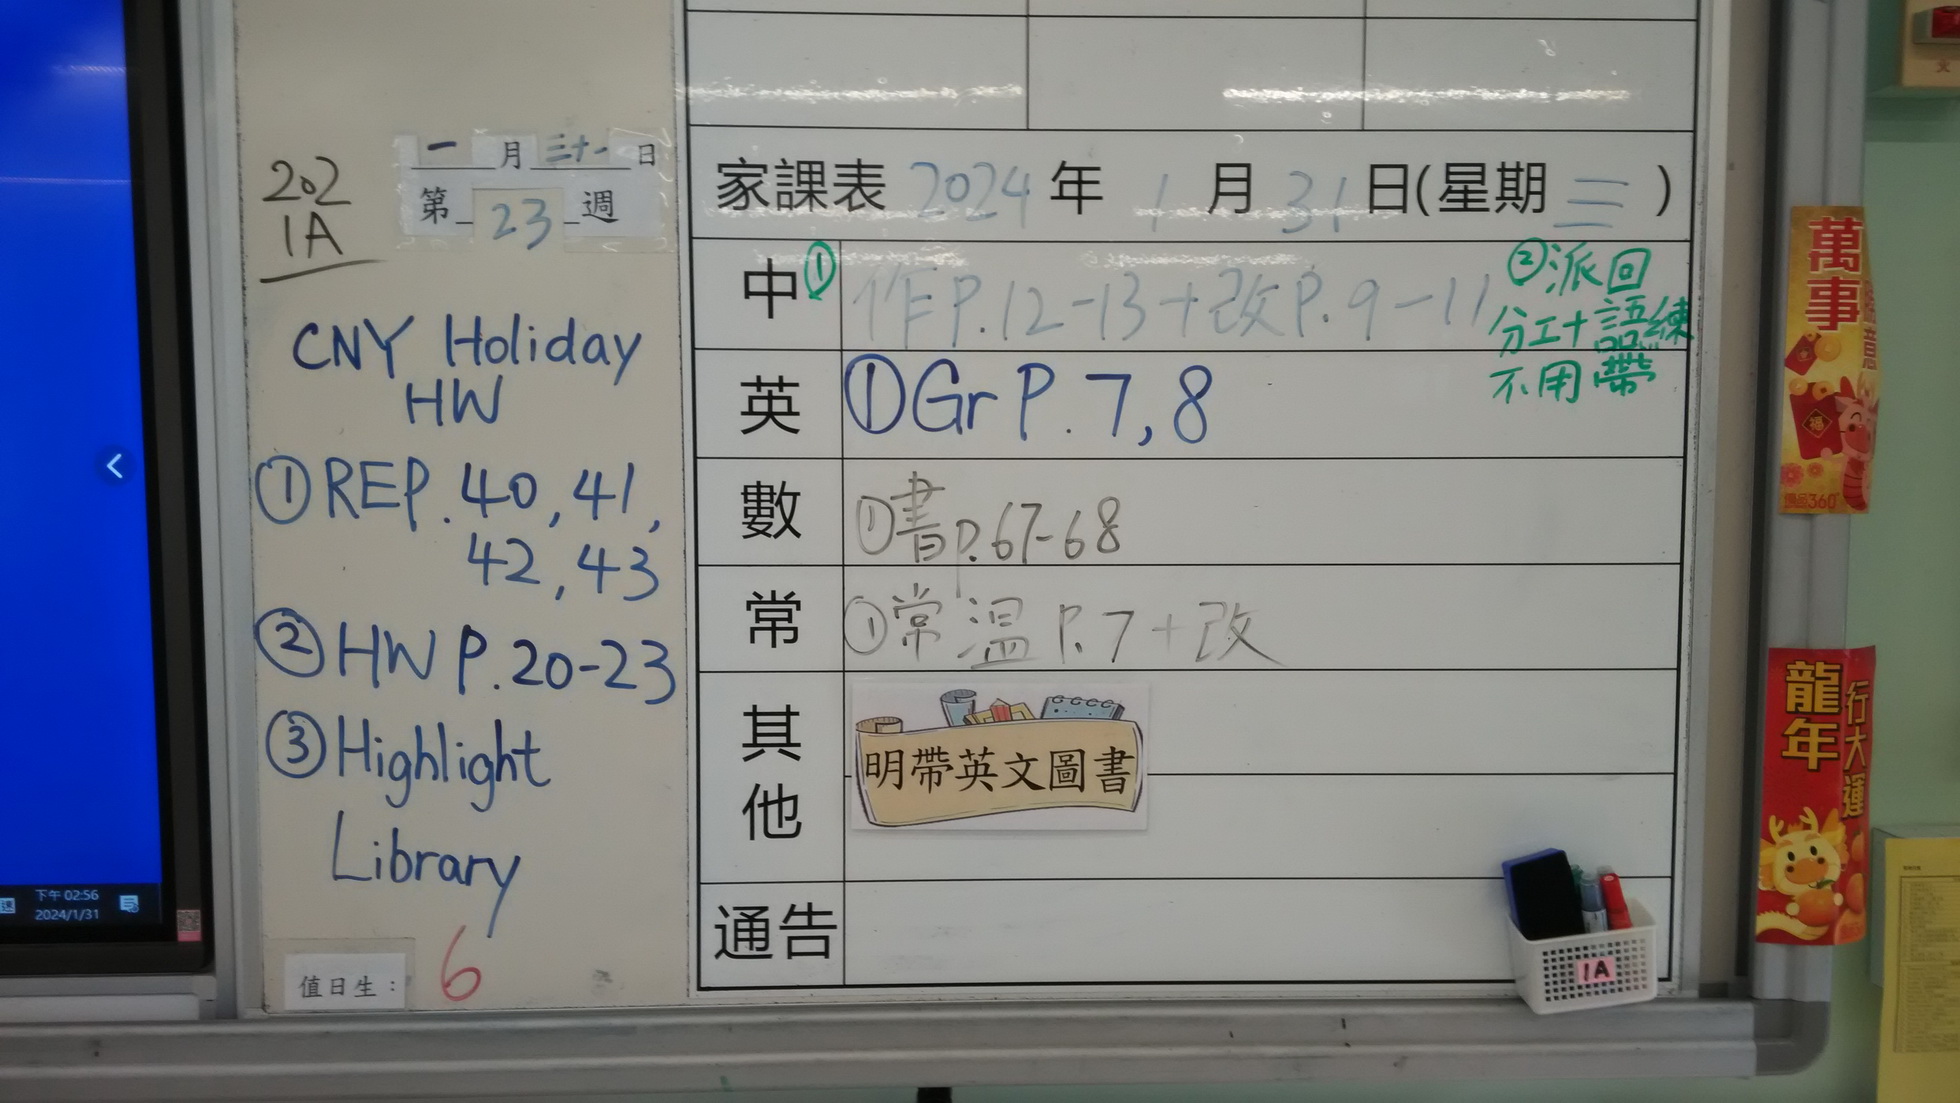 202
1A
一月三十一日
第23週
CNY Holiday
HW
①REP.40,41,
42,43
②HW P.20-23
③Highlight
Library
值日生：6
家課表 2024年 1月 31日(星期三)
中 ①作P.12-13+改P.9-11
②派回
分工+語練
不用帶
英 ①Gr P.7,8
數 ①書P.67-68
常 ①常溫P.7+改
其他
明帶英文圖書
通告
1A
下午 02:56
2024/1/31
萬事
福
龍年
行大運